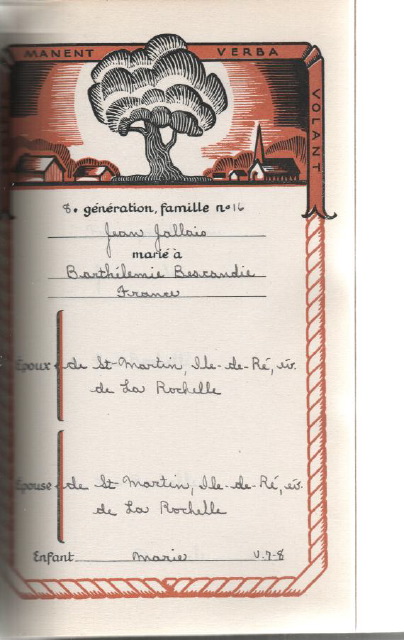 MANENT VERBA VOLANT
8e génération, famille no 16
Jean Jallais
marié à
Barthélemie Bescandie
France
Époux de St-Martin, Ile-de-Ré, év.
de La Rochelle
Épouse de St-Martin, Ile-de-Ré, év.
de La Rochelle
Enfant Marie V.7-8